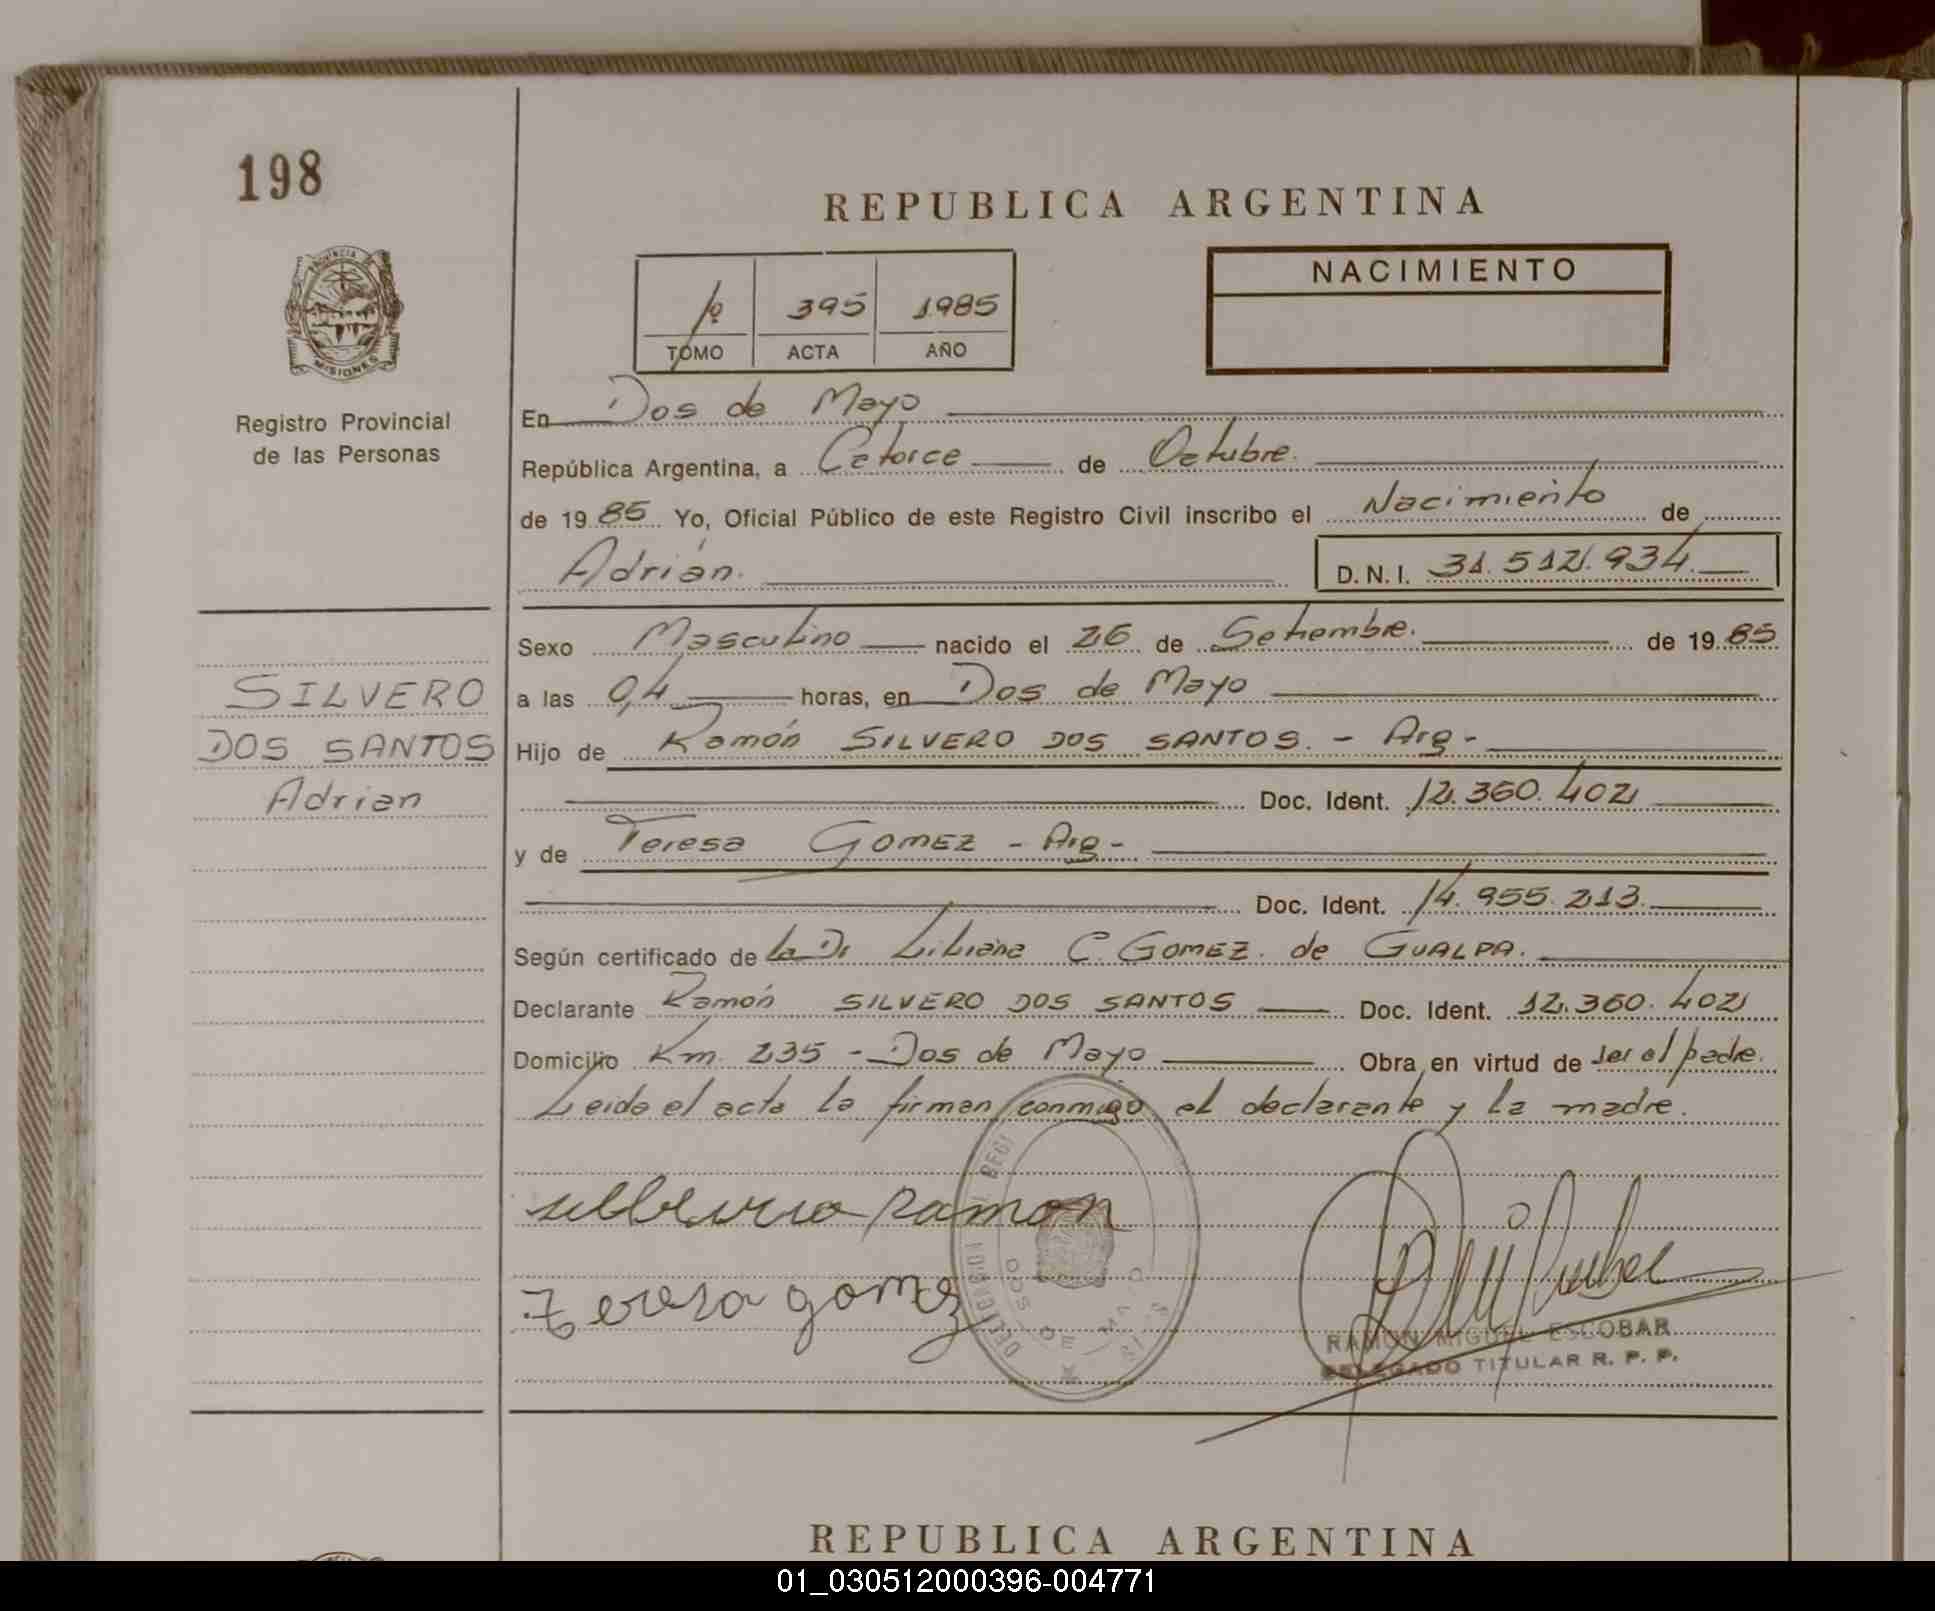 198
REPUBLICA ARGENTINA
PROVINCIA DE
MISIONES
Registro Provincial
de las Personas
1º 395 1985
TOMO ACTA AÑO
NACIMIENTO
En Dos de Mayo
República Argentina, a Catorce de Octubre.
de 19 85 Yo, Oficial Público de este Registro Civil inscribo el Nacimiento de
Adrián. D.N.I. 31.512.934.
Sexo Masculino nacido el 26 de Setiembre. de 19 85
SILVERO
DOS SANTOS
Adrian
a las 0,4 horas, en Dos de Mayo
Hijo de Ramón SILVERO DOS SANTOS. - Arg -
Doc. Ident. 12.360.402
y de Teresa GOMEZ - Arg -
Doc. Ident. 14.955.213.
Según certificado de La Dr Liliana C. GOMEZ. de GUALPA.
Declarante Ramón SILVERO DOS SANTOS Doc. Ident. 12.360.402
Domicilio Km. 235 - Dos de Mayo Obra en virtud de ser el padre.
Leida el acta la firman conmigo el declarante y la madre.
Ramon
Teresa gomez
RAMON MIGUEL ESCOBAR
DELEGADO TITULAR R. P. P.
REPUBLICA ARGENTINA
01_030512000396-004771